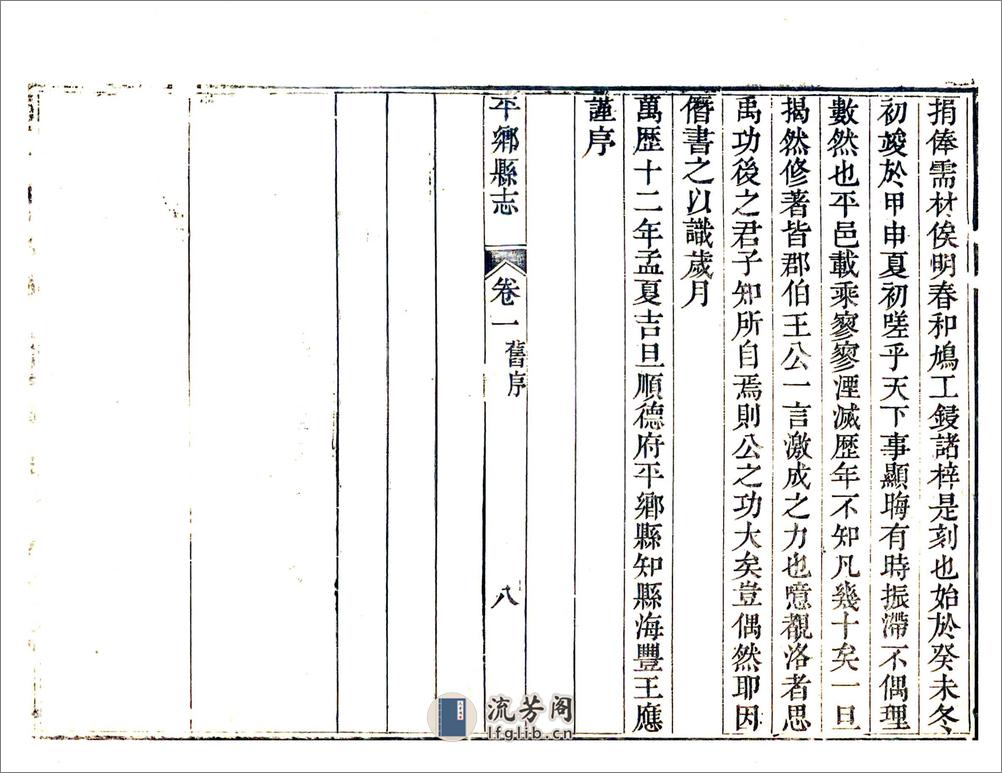 捐俸需材俟明春和鳩工鋟諸梓是刻也始於癸未冬
初竣於甲申夏初嗟乎天下事顯晦有時振滯不偶理
數然也平邑載乘寥寥湮滅歷年不知凡幾十矣一旦
揭然修著皆郡伯王公一言激成之力也噫觀洛者思
禹功後之君子知所自焉則公之功大矣豈偶然耶因
僭書之以識歲月
萬歷十二年孟夏吉旦順德府平鄉縣知縣海豐王應
謹序
平鄉縣志 卷一 舊序 八
流芳阁
lfglib.cn